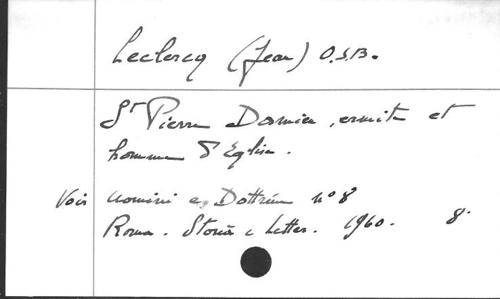 Leclercq (Jean) O.S.B.
St Pierre Damien, ermite et
homme d'Eglise.
Voir Uomini e Dottrine n° 8
Roma. Storia e Letter. 1960. 8°